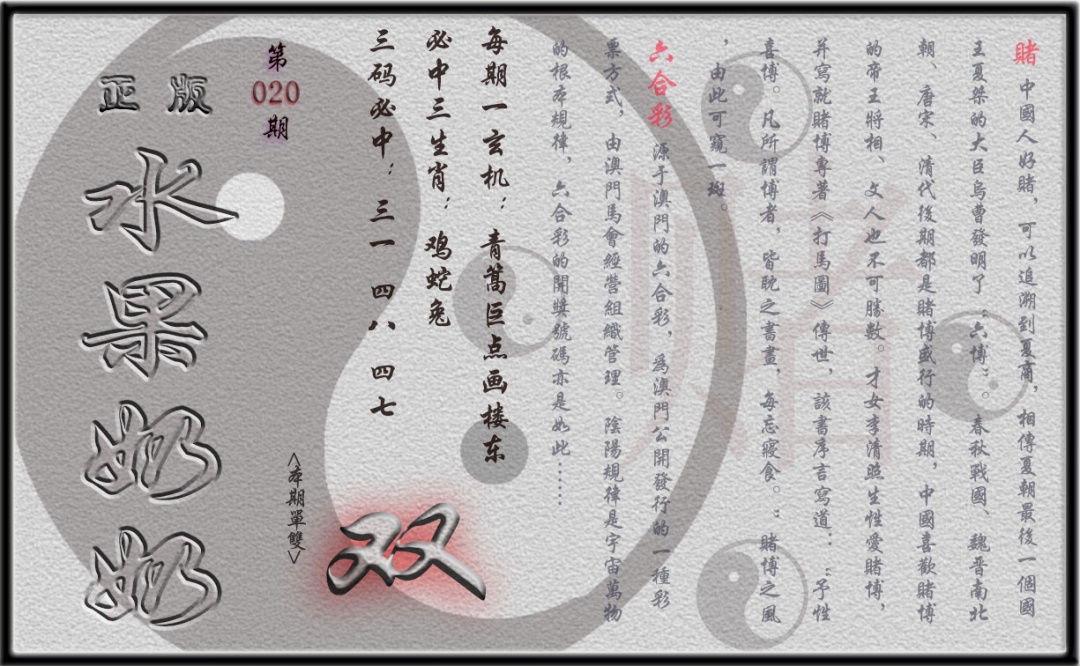 賭 中國人好賭，可以追溯到夏商，相傳夏朝最後一個國
王夏桀的大臣烏曹發明了“六博”。春秋戰國、魏晋南北
朝、唐宋、清代後期都是賭博盛行的時期，中國喜歡賭博
的帝王將相、文人也不可勝數。才女李清照生性愛賭博，
并寫就賭博專著《打馬圖》傳世，該書序言寫道：“予性
喜博。凡所謂博者，皆耽之晝晝，每忘寢食。”賭博之風
，由此可窺一斑。
六合彩 源于澳門的六合彩，為澳門公開發行的一種彩
票方式，由澳門馬會經營組織管理。陰陽規律是宇宙萬物
的根本規律，六合彩的開獎號碼亦是如此……
每期一玄机：青篙巨点画楼东
必中三生肖：鸡蛇兔
三码必中：三一 四八 四七
<本期單雙>
双
第
020
期
正版
水果奶奶
赌